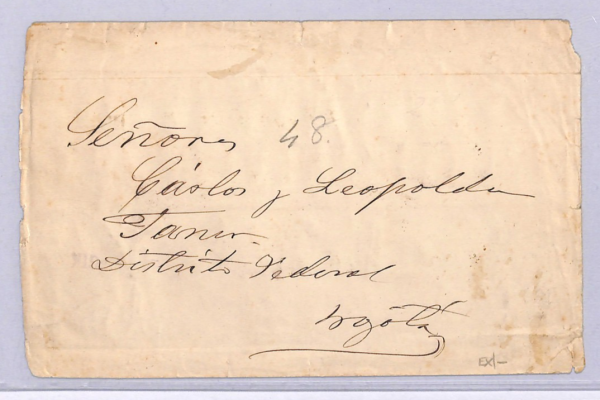 Señores 48.
Cárlos y Leopoldo
Tanco
Distrito Federal
Bogotá
EX/-